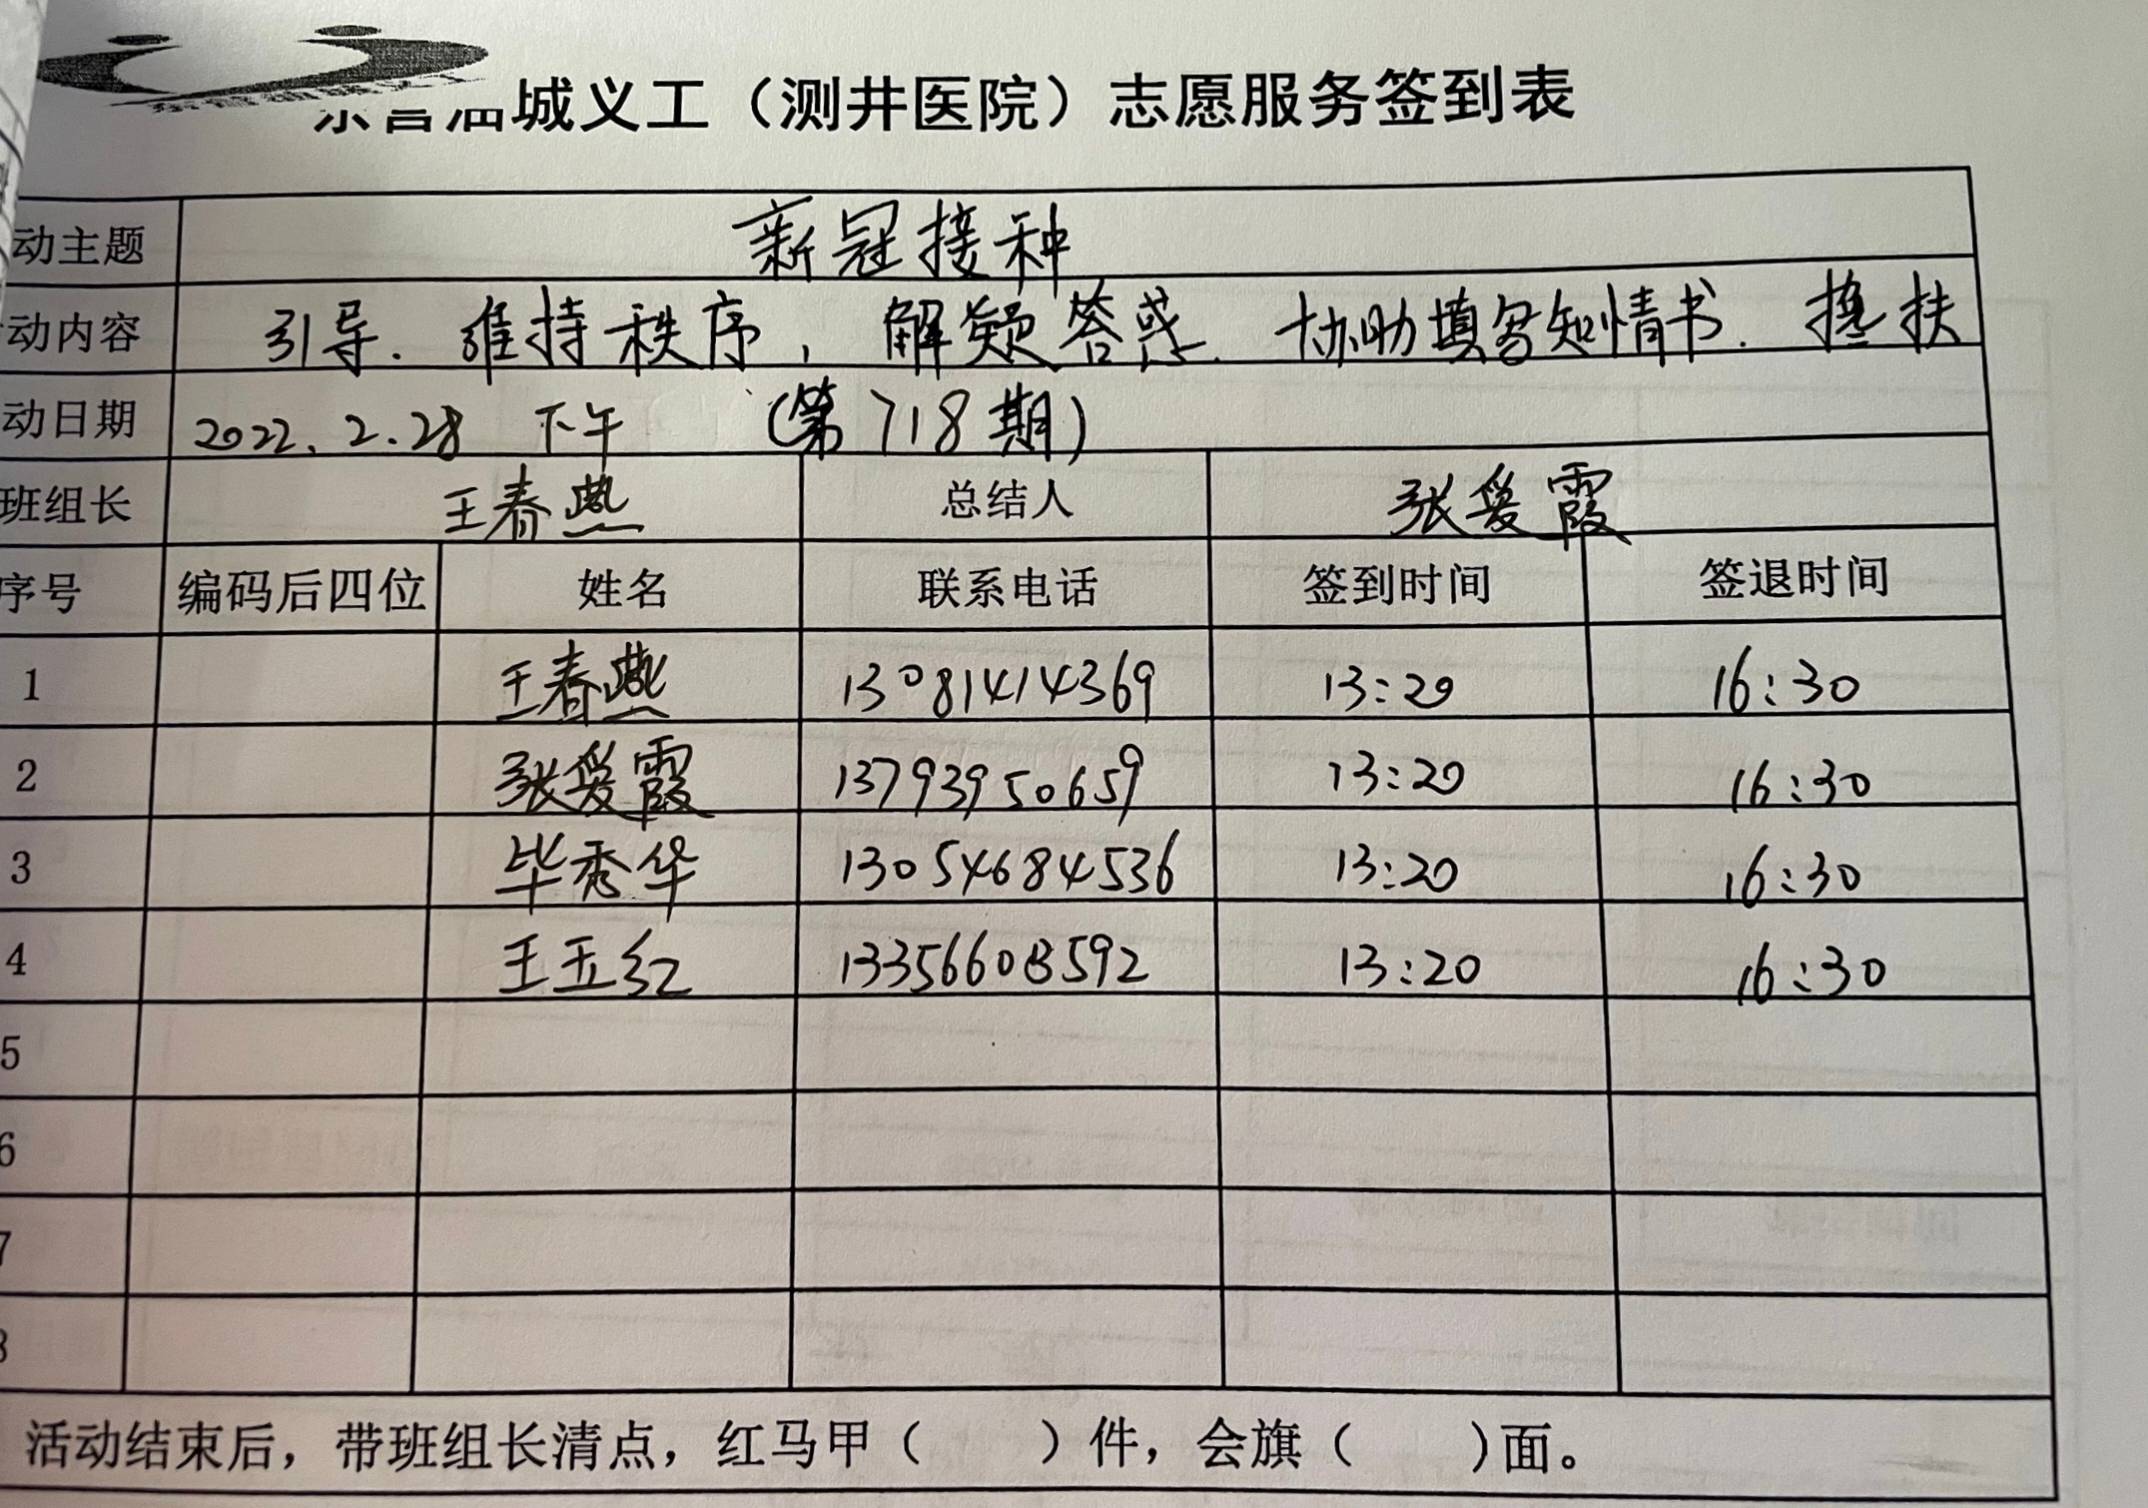 城义工（测井医院）志愿服务签到表
动主题 新冠接种
动内容 引导. 维持秩序, 解疑答惑. 协助填写知情书. 搀扶
动日期 2022.2.28 下午 (第718期)
班组长 王春燕 总结人 张爱霞
序号 编码后四位 姓名 联系电话 签到时间 签退时间
1 王春燕 13081414369 13:20 16:30
2 张爱霞 13793950659 13:20 16:30
3 毕秀华 13054684536 13:20 16:30
4 王玉红 13356608592 13:20 16:30
5
6
7
8
活动结束后，带班组长清点，红马甲（ ）件，会旗（ )面。